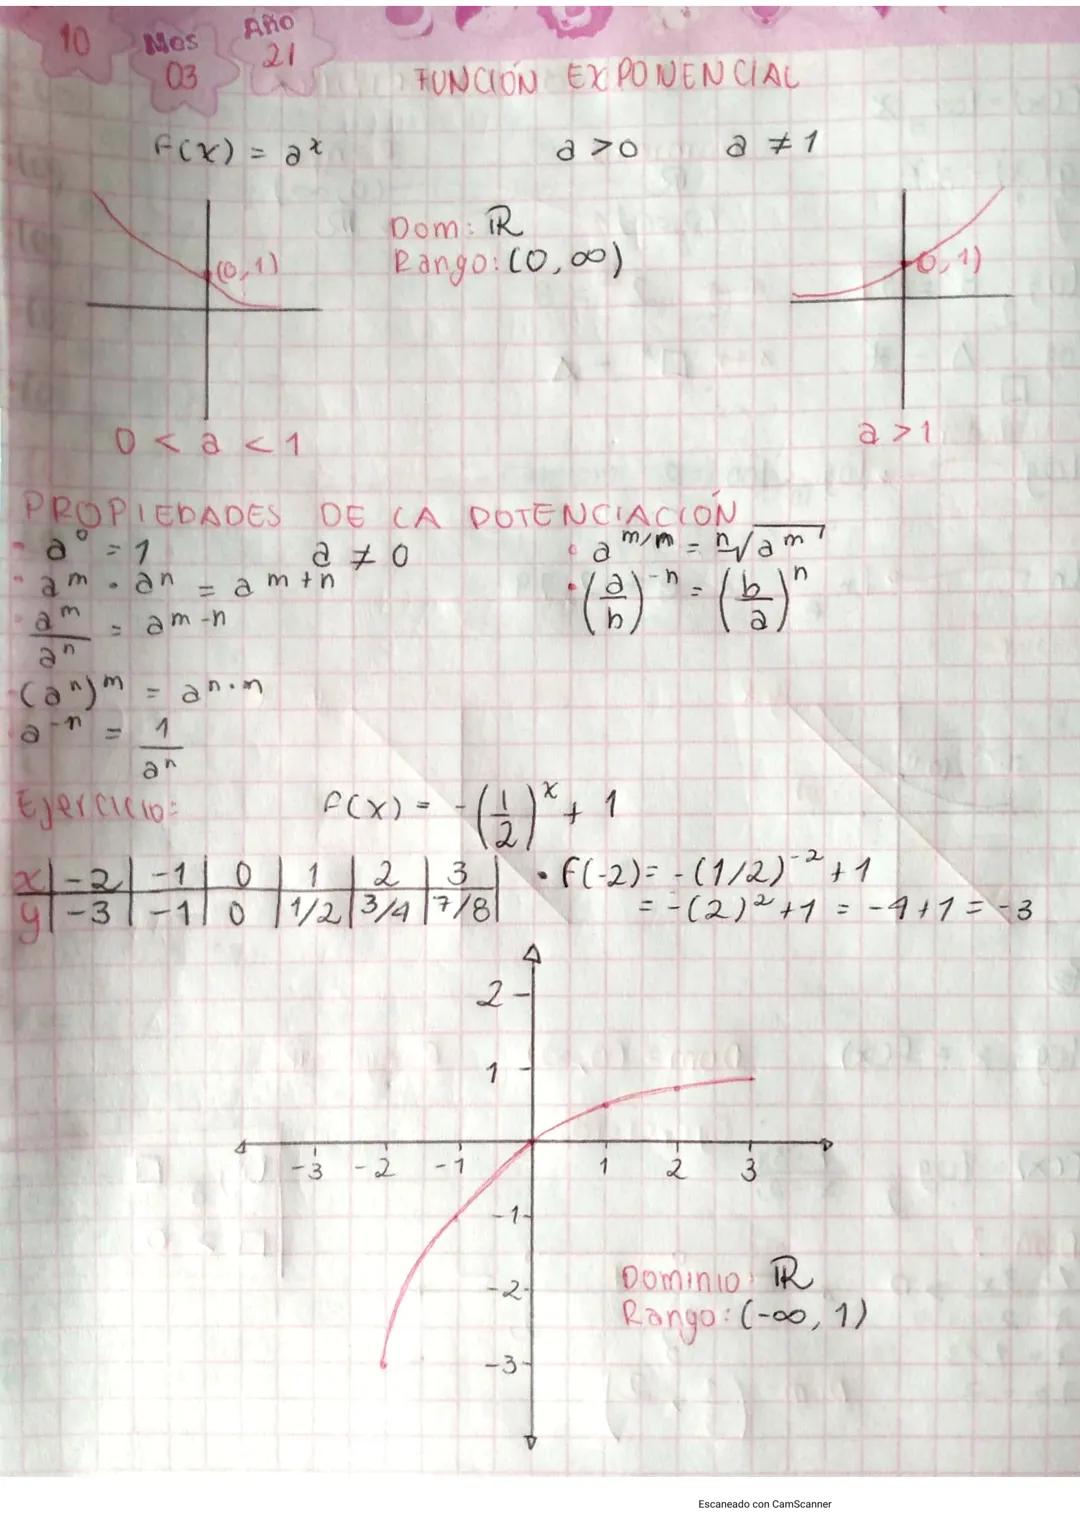 10 Mes Año
03 21
FUNCIÓN EXPONENCIAL
f(x) = a^x a > 0 a ≠ 1
Dom: ℝ
Rango: (0, ∞)
(0, 1)
(0, 1)
0 < a < 1
a > 1
PROPIEDADES DE LA POTENCIACIÓN
• a^0 = 1 a ≠ 0
• a^m · a^n = a^(m+n)
• a^m / a^n = a^(m-n)
(a^n)^m = a^(n·m)
a^(-n) = 1 / a^n
• a^(m/m) = n√a^m
• (a/b)^(-n) = (b/a)^n
Ejercicio: f(x) = -(1/2)^x + 1
x | -2 | -1 | 0 | 1 | 2 | 3
y | -3 | -1 | 0 | 1/2 | 3/4 | 7/8
• f(-2) = -(1/2)^(-2) + 1
= -(2)^2 + 1 = -4 + 1 = -3
2
1
-3 -2 -1 1 2 3
-1
-2
-3
Dominio: ℝ
Rango: (-∞, 1)
Escaneado con CamScanner